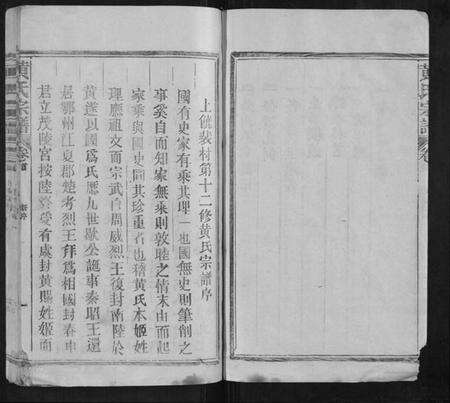 黃氏宗譜
上饒裴村第十二修黃氏宗譜序
國有史家有乘其理一也國無史則筆削之
事奚自而知家無乘則敦睦之情末由而起
家乘與國史同其珍重者也稽黃氏本姬姓
理應祖文而宗武自周威烈王復封南陸於
黃遂以國爲氏歷九世歇公誕事秦昭王還
居鄂州江夏郡楚考烈王拜爲相國封春申
君立茂陸宮按陸 受有處封黃賜姓姬向
黃氏宗譜 卷首